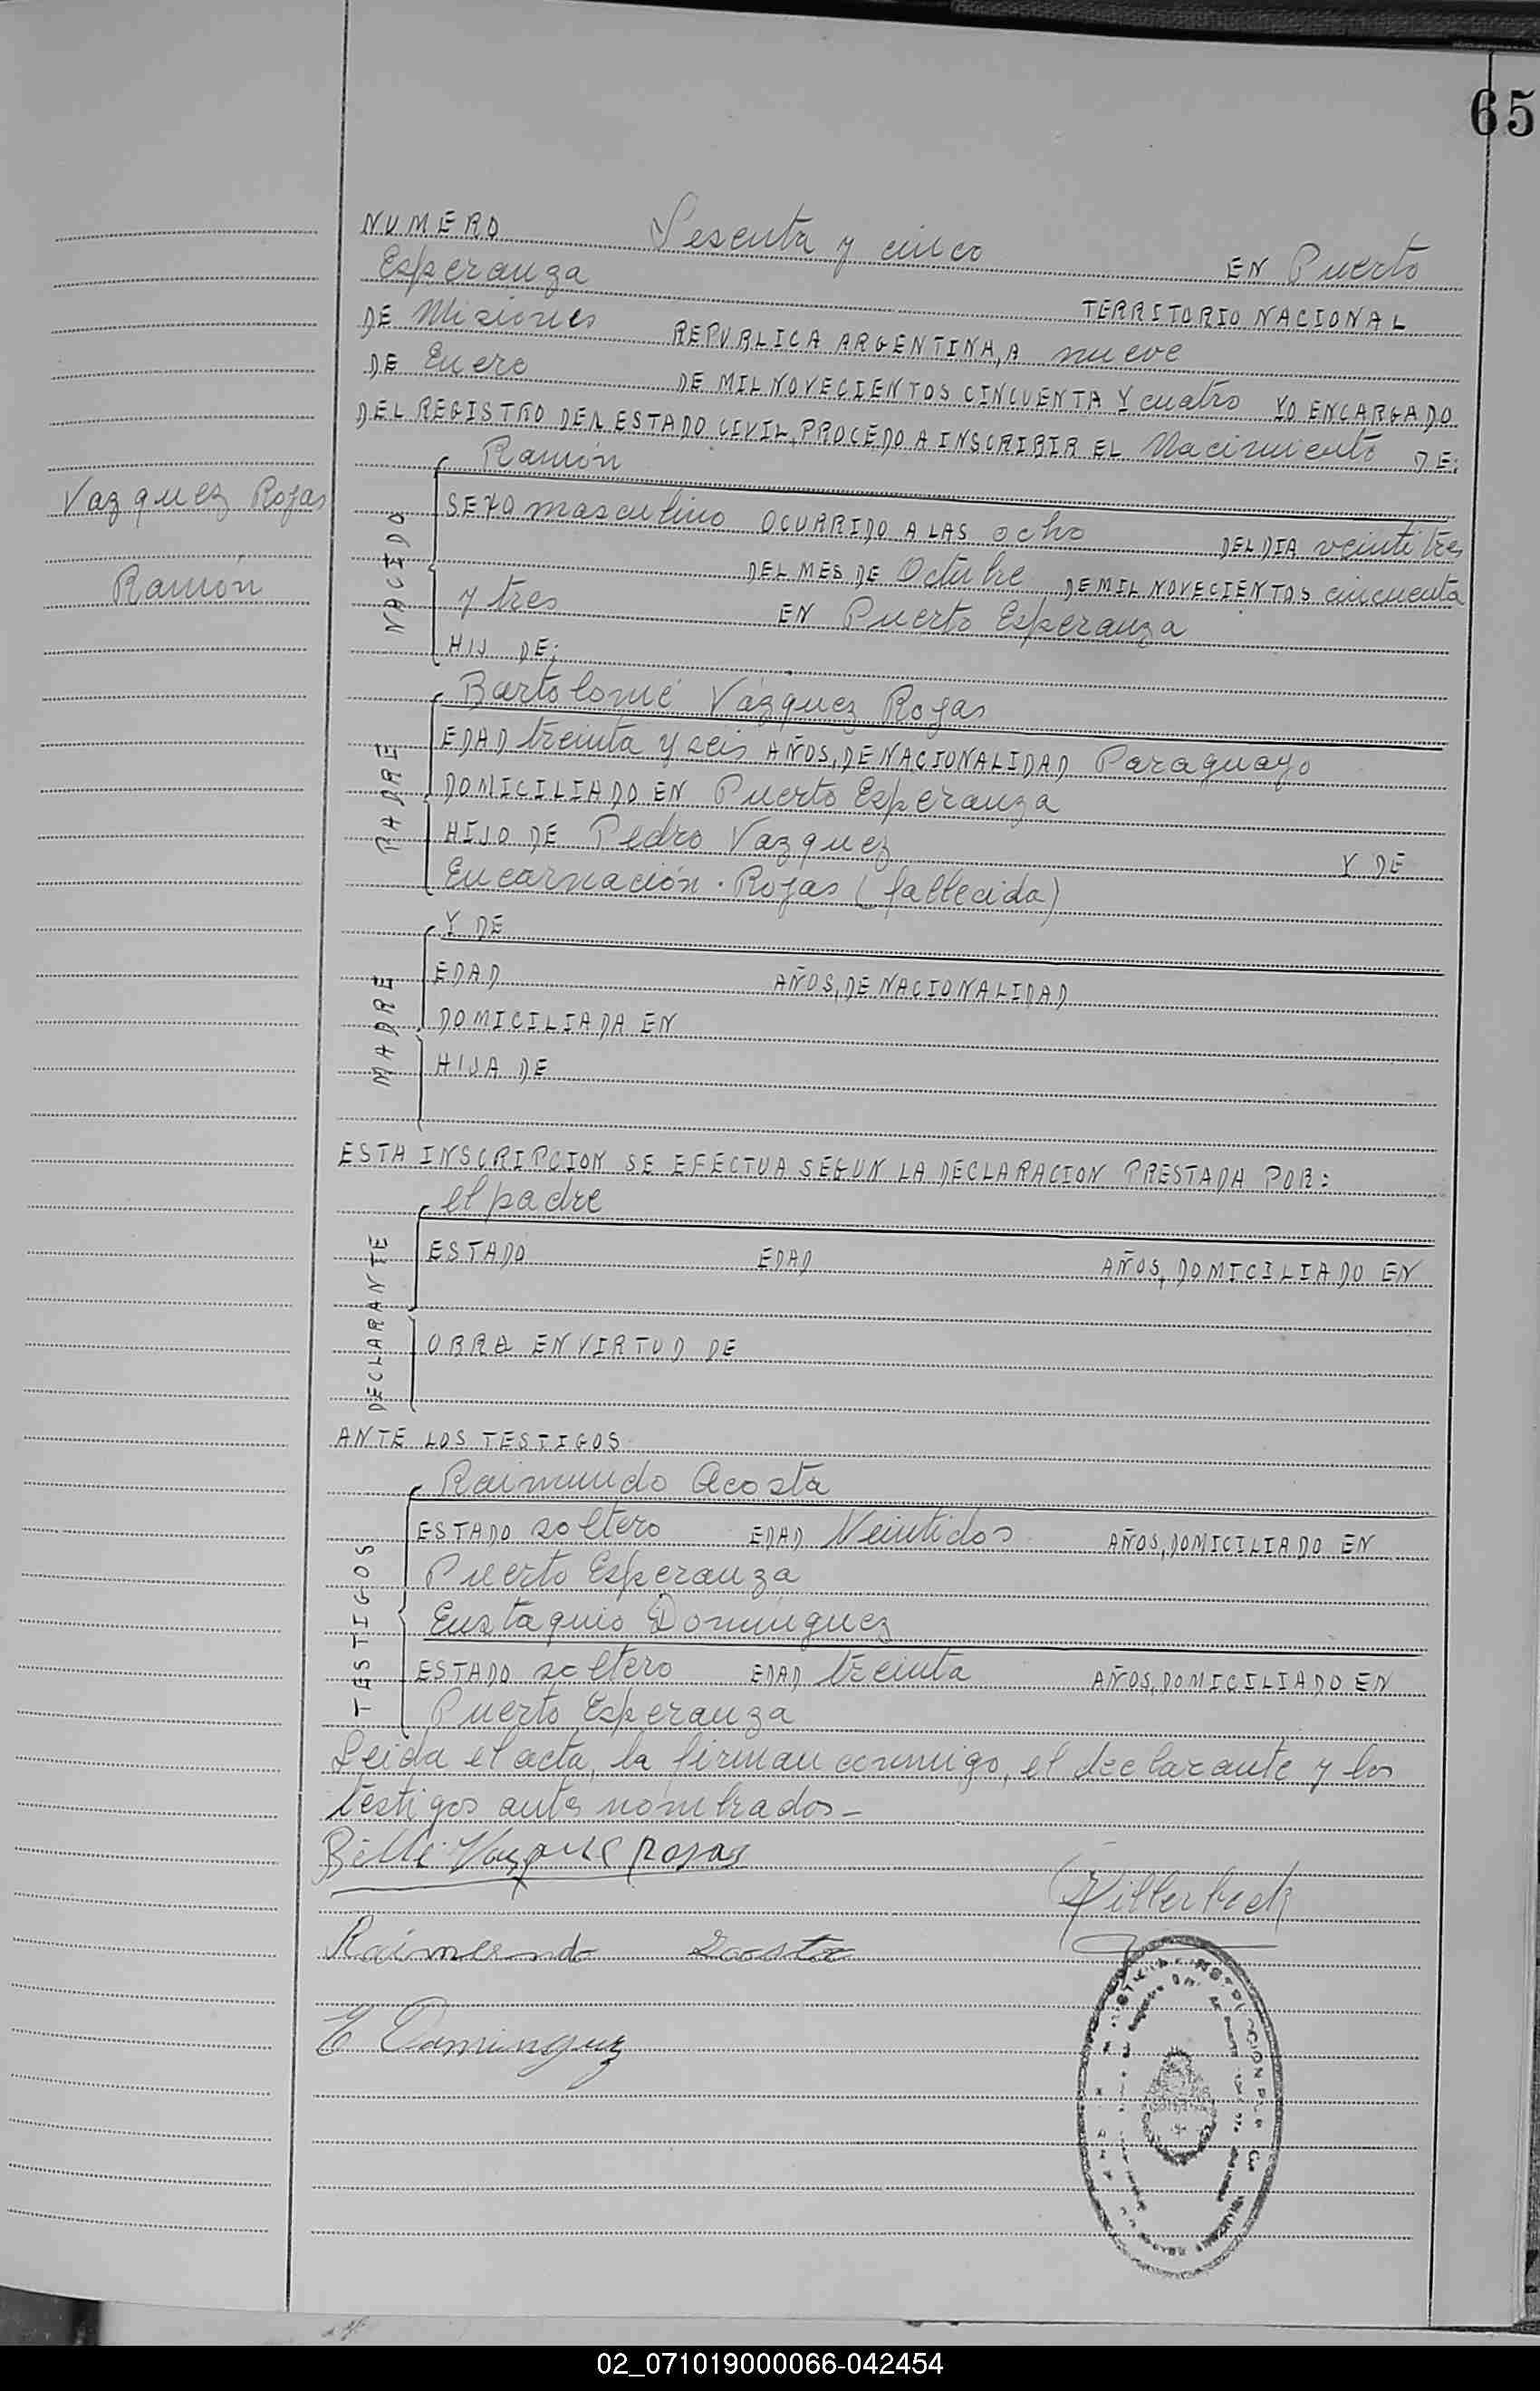 65
NUMERO Sesenta y cinco EN Puerto
Esperanza TERRITORIO NACIONAL
DE Misiones REPUBLICA ARGENTINA, A nueve
DE Enero DE MIL NOVECIENTOS CINCUENTA Y cuatro YO ENCARGADO
DEL REGISTRO DEL ESTADO CIVIL, PROCEDO A INSCRIBIR EL Nacimiento DE:
Vazquez Rojas
Ramón
NACIDO
Ramón
SEXO masculino OCURRIDO A LAS ocho DEL DIA veintitres
DEL MES DE Octubre DE MIL NOVECIENTOS cincuenta
y tres EN Puerto Esperanza
HIJ DE:
PADRE
Bartolomé Vázquez Rojas
EDAD treinta y seis AÑOS, DE NACIONALIDAD Paraguayo
DOMICILIADO EN Puerto Esperanza
HIJO DE Pedro Vazquez Y DE
Encarnación Rojas (fallecida)
MADRE
Y DE
EDAD AÑOS, DE NACIONALIDAD
DOMICILIADA EN
HIJA DE
ESTA INSCRIPCION SE EFECTUA SEGUN LA DECLARACION PRESTADA POR:
DECLARANTE
el padre
ESTADO EDAD AÑOS, DOMICILIADO EN
OBRA EN VIRTUD DE
ANTE LOS TESTIGOS
TESTIGOS
Raimundo Acosta
ESTADO soltero EDAD Veintidos AÑOS, DOMICILIADO EN
Puerto Esperanza
Eustaquio Domínguez
ESTADO soltero EDAD treinta AÑOS, DOMICILIADO EN
Puerto Esperanza
Leida el acta, la firman conmigo, el declarante y los
testigos antes nombrados-
Rojas
Raimundo Acosta
E Dominguez
02_071019000066-042454